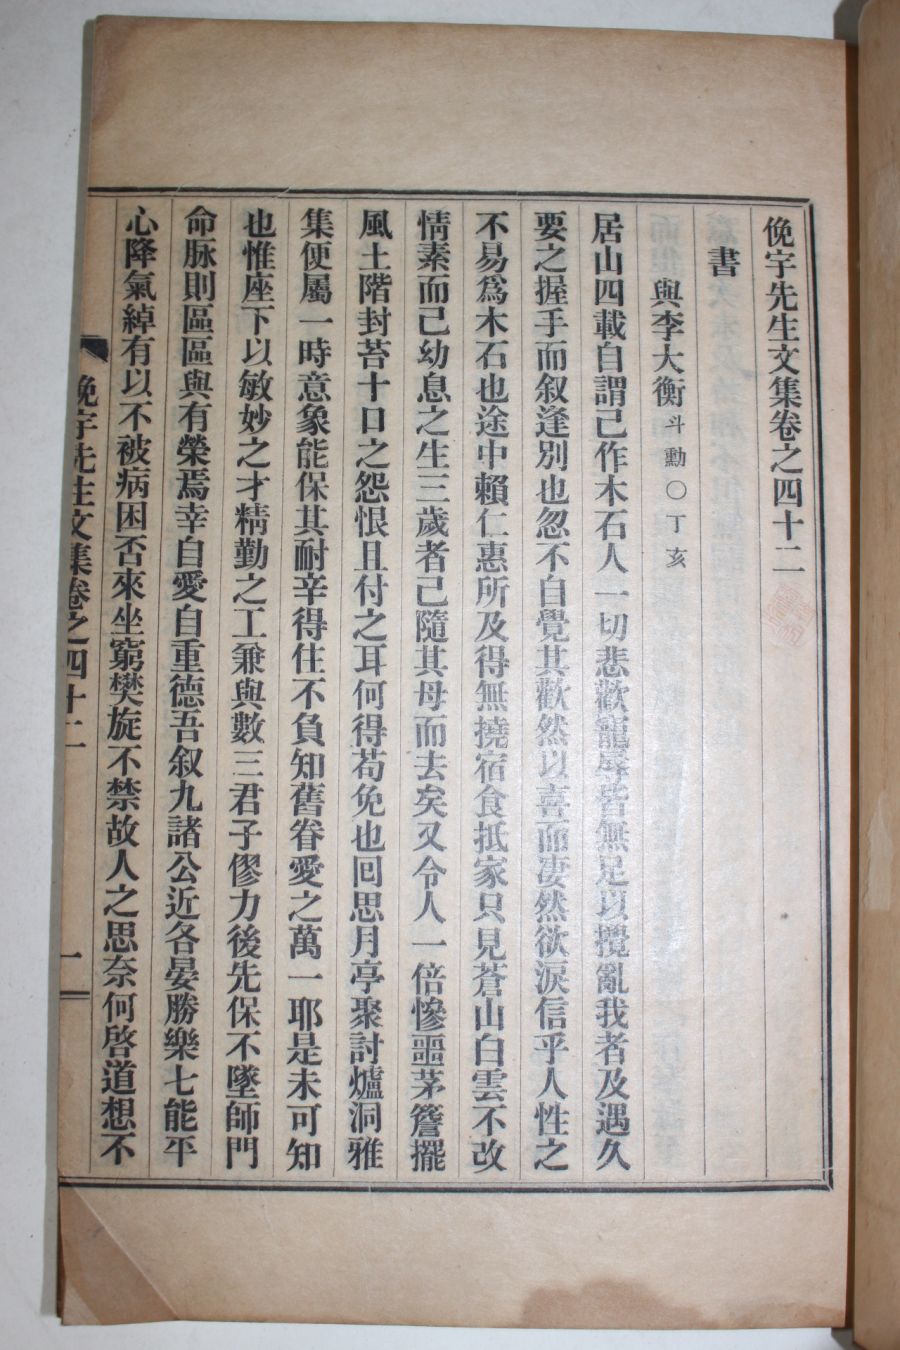 俛宇先生文集卷之四十二
書
與李大衡斗勳〇丁亥
居山四載自謂已作木石人一切悲歡寵辱皆無足以攪亂我者及遇久
要之握手而叙逢別也忽不自覺其歡然以喜而凄然欲淚信乎人性之
不易爲木石也途中賴仁惠所及得無撓宿食抵家只見蒼山白雲不改
情素而已幼息之生三歲者已隨其母而去矣又令人一倍慘噩茅簷擺
風土階封苔十口之怨恨且付之耳何得苟免也回思月亭聚討爐洞雅
集便屬一時意象能保其耐辛得住不負知舊眷愛之萬一耶是未可知
也惟座下以敏妙之才精勤之工兼與數三君子僇力後先保不墜師門
命脉則區區與有榮焉幸自愛自重德吾叙九諸公近各晏勝樂七能平
心降氣綽有以不被病困否來坐窮樊旋不禁故人之思奈何啓道想不
俛宇先生文集卷之四十二
一